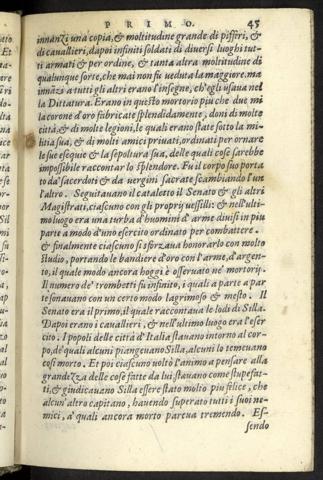 PRIMO. 45
innanzi una copia, & moltitudine grande di pifferi, &
di cavallieri, dapoi infiniti soldati di diversi luoghi tut-
ti armati & per ordine, & tanta altra moltitudine di
qualunque sorte, che mai non fu veduta la maggiore. ma
innãzi a tutti gli altri erano l'insegne, ch'egli usava nel
la Dittatura. Erano in questo mortorio piu che due mi
la corone d'oro fabricate splendidamente, doni di molte
città, & di molte legioni, le quali erano state sotto la mi-
litia sua, & di molti amici privati, ordinati per ornare
le sue esequie & la sepoltura sua, delle quali cose sarebbe
impossibile raccontar lo splendore. Fu il corpo suo porta
to da' sacerdoti & da vergini sacrate scambiando l'un
l'altro. Seguitauano il cataletto il Senato & gli altri
Magistrati, ciascuno con gli proprij vessilli: & nell'ulti
mo luogo era una turba d'huomini d'arme divisi in piu
parte a modo d'uno esercito ordinato per combattere.
& finalmente ciascuno si sforzaua honorarlo con molto
studio, portando le bandiere d'oro con l'arme, d'argen-
to, il quale modo ancora hoggi è osservato ne' mortorij.
Il numero de' trombetti fu infinito, i quali a parte a par
te sonauano con un certo modo lagrimoso & mesto. Il
Senato era il primo, il quale raccontaua le lodi di Silla.
Dapoi erano i cavallieri, & nell'ultimo luogo era l'eser
cito. I popoli delle città d'Italia stauano intorno al cor-
po, de' quali alcuni piangeuano Silla, alcuni lo temeuano
cosi morto. Et poi ciascuno voltò l'animo a pensare alla
grandezza delle cose fatte da lui stauano come stupefat-
ti, & giudicauano Silla essere stato molto piu felice, che
alcun'altro capitano, havendo superato tutti i suoi ne-
mici, a' quali ancora morto pareua tremendo. Es-
sendo